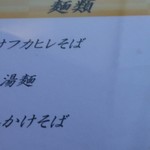 麺類
オフカヒレそば
湯麺
かけそば